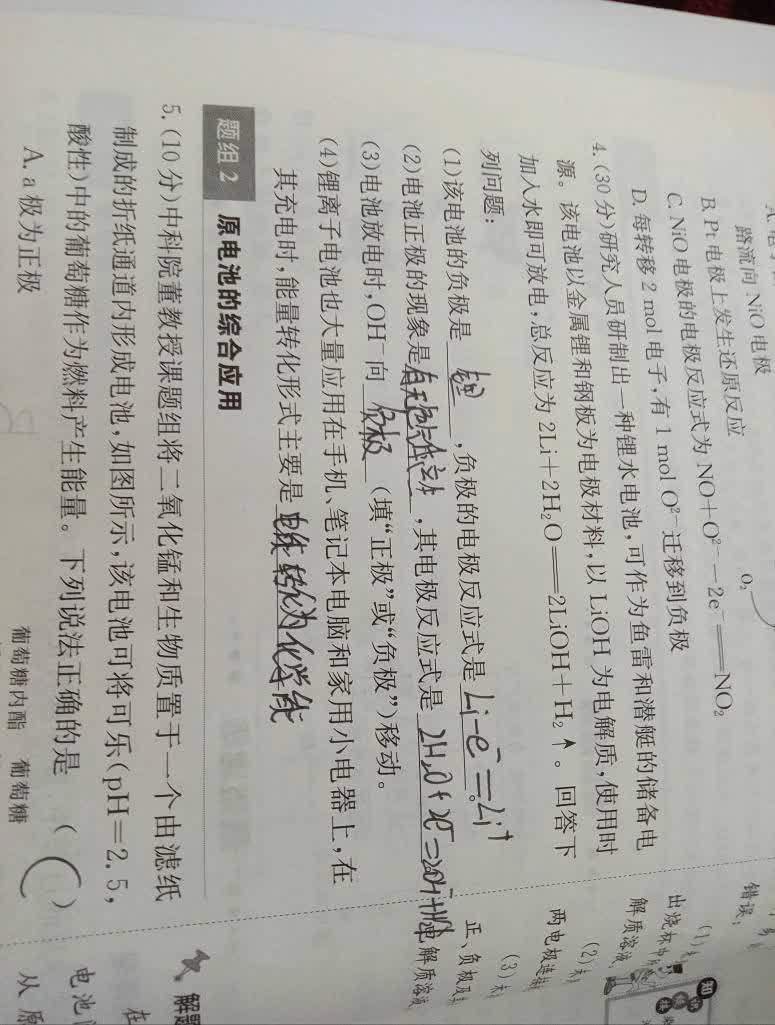 路流向 NiO 电极
O₂
B. Pt 电极上发生还原反应
C. NiO 电极的电极反应式为 NO+O²⁻−2e⁻══NO₂
D. 每转移 2 mol 电子,有 1 mol O²⁻ 迁移到负极
4. (30 分)研究人员研制出一种锂水电池,可作为鱼雷和潜艇的储备电
源。该电池以金属锂和钢板为电极材料,以 LiOH 为电解质,使用时
加入水即可放电,总反应为 2Li+2H₂O══2LiOH+H₂↑。回答下
列问题:
(1)该电池的负极是 锂 ,负极的电极反应式是 Li-e⁻=Li⁺ 。
(2)电池正极的现象是 有无色气体产生 ,其电极反应式是 2H₂O+2e⁻=2OH⁻+H₂↑
(3)电池放电时,OH⁻向 负极 (填“正极”或“负极”)移动。
(4)锂离子电池也大量应用在手机、笔记本电脑和家用小电器上,在
其充电时,能量转化形式主要是 电能转化为化学能
题组 2 原电池的综合应用
5. (10 分)中科院董教授课题组将二氧化锰和生物质置于一个由滤纸
制成的折纸通道内形成电池,如图所示,该电池可将可乐(pH=2.5,
酸性)中的葡萄糖作为燃料产生能量。下列说法正确的是 ( C )
A. a 极为正极
葡萄糖内酯 葡萄糖
错误;
(1)
出烧杯中
解质溶液
(2)
两电极连接
(3)
正、负极及
电解质溶液
知识
解题
在
电池
从 原